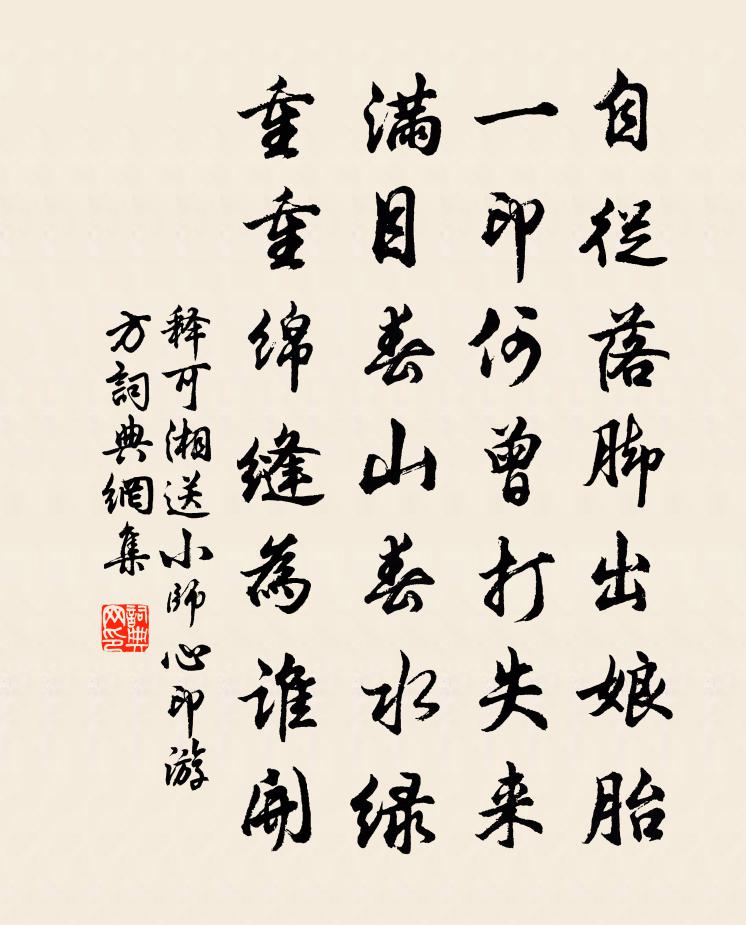 自從落脚出娘胎
一印何曾打失来
满目春山春水緑
重重綿縫為誰開
释可湘送小師心印游
方詞典網集
詞典网印